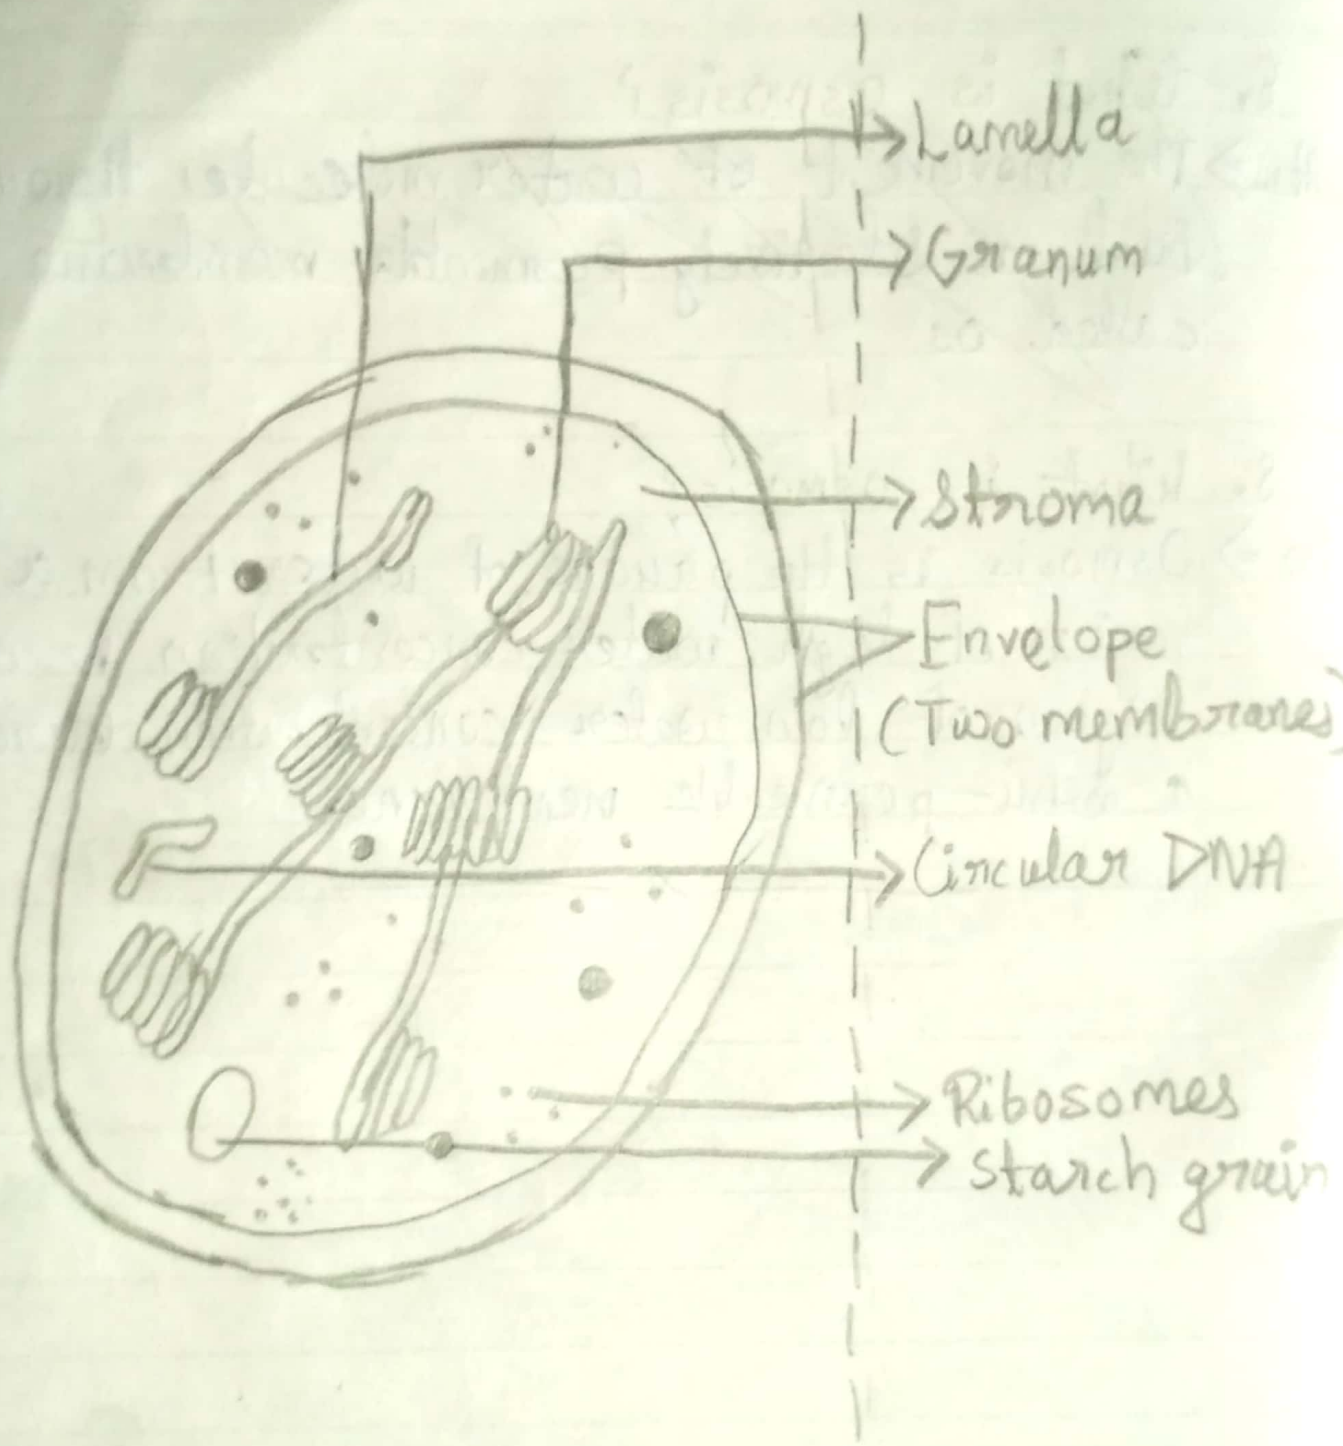 Lamella
Granum
Stroma
Envelope
(Two membranes)
Circular DNA
Ribosomes
Starch grain